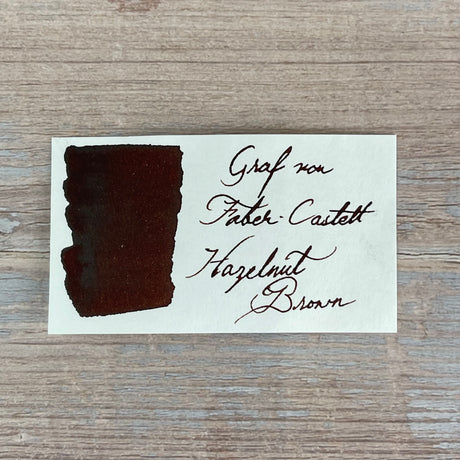 Graf von
Faber-Castell
Hazelnut
Brown